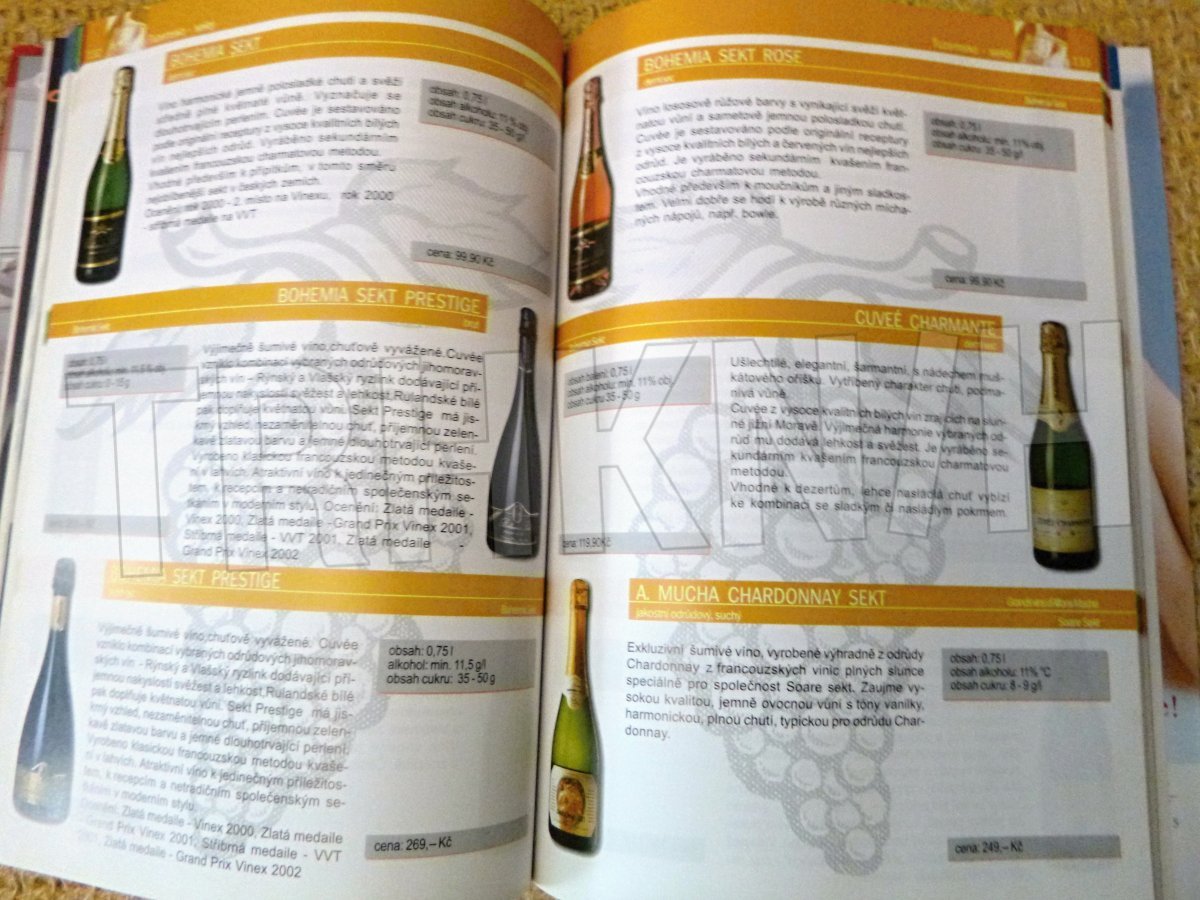 Tuzemsko - sekty
BOHEMIA SEKT
demi sec
Víno harmonické jemně polosladké chuti a svěží
ušlechtilé květnaté vůně. Vyznačuje se
dlouhotrvajícím perlením. Cuvée je sestavováno
podle originální receptury z vysoce kvalitních bílých
vín nejlepších odrůd. Vyráběno sekundárním
kvašením francouzskou charmatovou metodou.
Vhodné především k přípitkům, v tomto směru
nejoblíbenější sekt v českých zemích.
Ocenění: rok 2000 - 2. místo na Vinexu, rok 2000
- stříbrná medaile na VVT
obsah: 0,75 l
obsah alkoholu: 11 % obj.
obsah cukru: 35 - 50 g/l
cena: 99,90 Kč
BOHEMIA SEKT PRESTIGE
brut
Bohemia sekt
obsah: 0,75 l
obsah cukru: 0 - 15 g
Výjimečně šumivé víno,chuťově vyvážené.Cuvée
vzniklo kombinací vybraných odrůdových jihomorav-
ských vín - Rýnský a Vlašský ryzlink dodávající pří-
jemnou nakyslostí svěžest a lehkost.Rulandské bílé
pak doplňuje květnatou vůní. Sekt Prestige má jis-
krný vzhled, nezaměnitelnou chuť, příjemnou zelen-
kavě zlatavou barvu a jemné dlouhotrvající perlení.
Vyrobeno klasickou francouzskou metodou kvaše-
ní v lahvích. Atraktivní víno k jedinečným příležitos-
tem, k recepcím a netradičním společenským se-
tkáním v moderním stylu. Ocenění: Zlatá medaile -
Vinex 2000, Zlatá medaile -Grand Prix Vinex 2001,
Stříbrná medaile - VVT 2001, Zlatá medaile -
Grand Prix Vinex 2002
BOHEMIA SEKT PRESTIGE
Bohemia sekt
Výjimečně šumivé víno,chuťově vyvážené. Cuvée
vzniklo kombinací vybraných odrůdových jihomorav-
ských vín - Rýnský a Vlašský ryzlink dodávající pří-
jemnou nakyslostí svěžest a lehkost.Rulandské bílé
pak doplňuje květnatou vůní. Sekt Prestige má jis-
krný vzhled, nezaměnitelnou chuť, příjemnou zelen-
kavě zlatavou barvu a jemné dlouhotrvající perlení.
Vyrobeno klasickou francouzskou metodou kvaše-
ní v lahvích. Atraktivní víno k jedinečným příležitos-
tem, k recepcím a netradičním společenským se-
tkáním v moderním stylu.
Ocenění: Zlatá medaile - Vinex 2000, Zlatá medaile
- Grand Prix Vinex 2001, Stříbrná medaile - VVT
2001, Zlatá medaile - Grand Prix Vinex 2002
obsah: 0,75 l
alkohol: min. 11,5 g/l
obsah cukru: 35 - 50 g
cena: 269,– Kč
Tuzemsko - sekty 133
BOHEMIA SEKT ROSE
demi sec
Bohemia sekt
Víno lososově růžové barvy s vynikající svěží květ-
natou vůní a sametově jemnou polosladkou chutí.
Cuvée je sestavováno podle originální receptury
z vysoce kvalitních bílých a červených vín nejlepších
odrůd. Je vyráběno sekundárním kvašením fran-
couzskou charmatovou metodou.
Vhodné především k moučníkům a jiným sladkos-
tem. Velmi dobře se hodí k výrobě různých mícha-
ných nápojů, např. bowle.
obsah: 0,75 l
obsah alkoholu: min. 11% obj.
obsah cukru: 35 - 50 g/l
cena: 99,90 Kč
CUVEÉ CHARMANTE
demi sec
Bohemia Sekt
obsah balení: 0,75 l
obsah alkoholu: min. 11% obj.
obsah cukru 35 - 50 g/l
Ušlechtilé, elegantní, šarmantní, s nádechem muš-
kátového oříšku. Vytříbený charakter chuti, podma-
nivá vůně.
Cuvée z vysoce kvalitních bílých vín zrajících na slun-
né jižní Moravě. Výjimečná harmonie vybraných od-
růd mu dodává lehkost a svěžest. Je vyráběno se-
kundárním kvašením francouzskou charmatovou
metodou.
Vhodné k dezertům, lehce nasládlá chuť vybízí
ke kombinaci se sladkým či nasládlým pokrmem.
cena: 119,90Kč
A. MUCHA CHARDONNAY SEKT
jakostní odrůdový, suchý
Soare Sekt
Exkluzivní šumivé víno, vyrobené výhradně z odrůdy
Chardonnay z francouzských vinic plných slunce
speciálně pro společnost Soare sekt. Zaujme vy-
sokou kvalitou, jemně ovocnou vůní s tóny vanilky,
harmonickou, plnou chutí, typickou pro odrůdu Char-
donnay.
obsah: 0,75 l
obsah alkoholu: 11% °C
obsah cukru: 8 - 9 g/l
cena: 249,– Kč
TRHKNIH